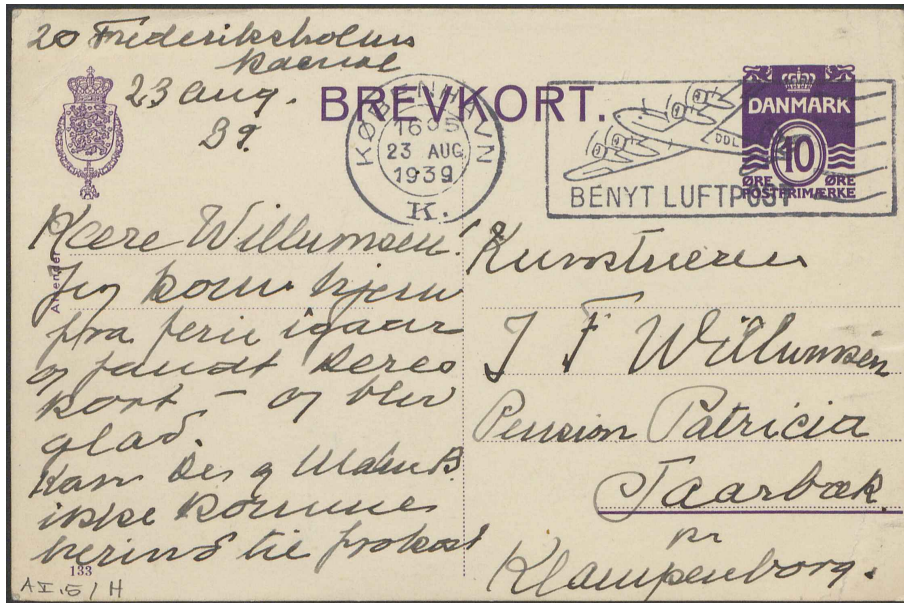 20 Frederiksholms
Kanal
23 aug.
39.
BREVKORT.
KØBENHAVN
1605
23 AUG
1939
K.
DDL
BENYT LUFTPOST
DANMARK
10
ØRE ØRE
POSTFRIMÆRKE
Kære Willumsen!
Afsender
Jeg kom hjem
fra ferie igaar
og fandt Deres
kort – og blev
glad.
Kan De og Madm B.
ikke komme
herind til frokost
133
AI.5/H
Kunstneren
J F Willumsen
Pension Patricia
Taarbæk
pr
Klampenborg.